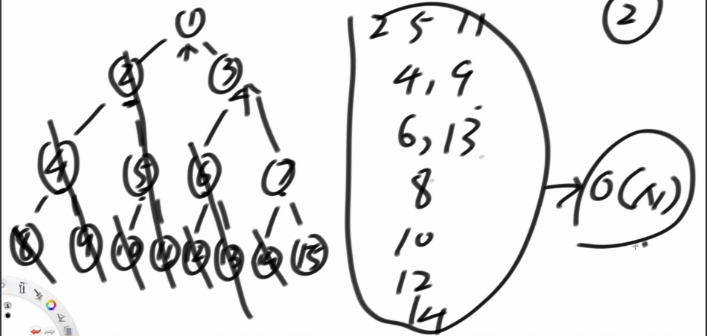 1
2 3
4 5 6 7
8 9 10 11 12 13 14 15
2 5 11
4, 9
6, 13
8
10
12
14
O(N)
2